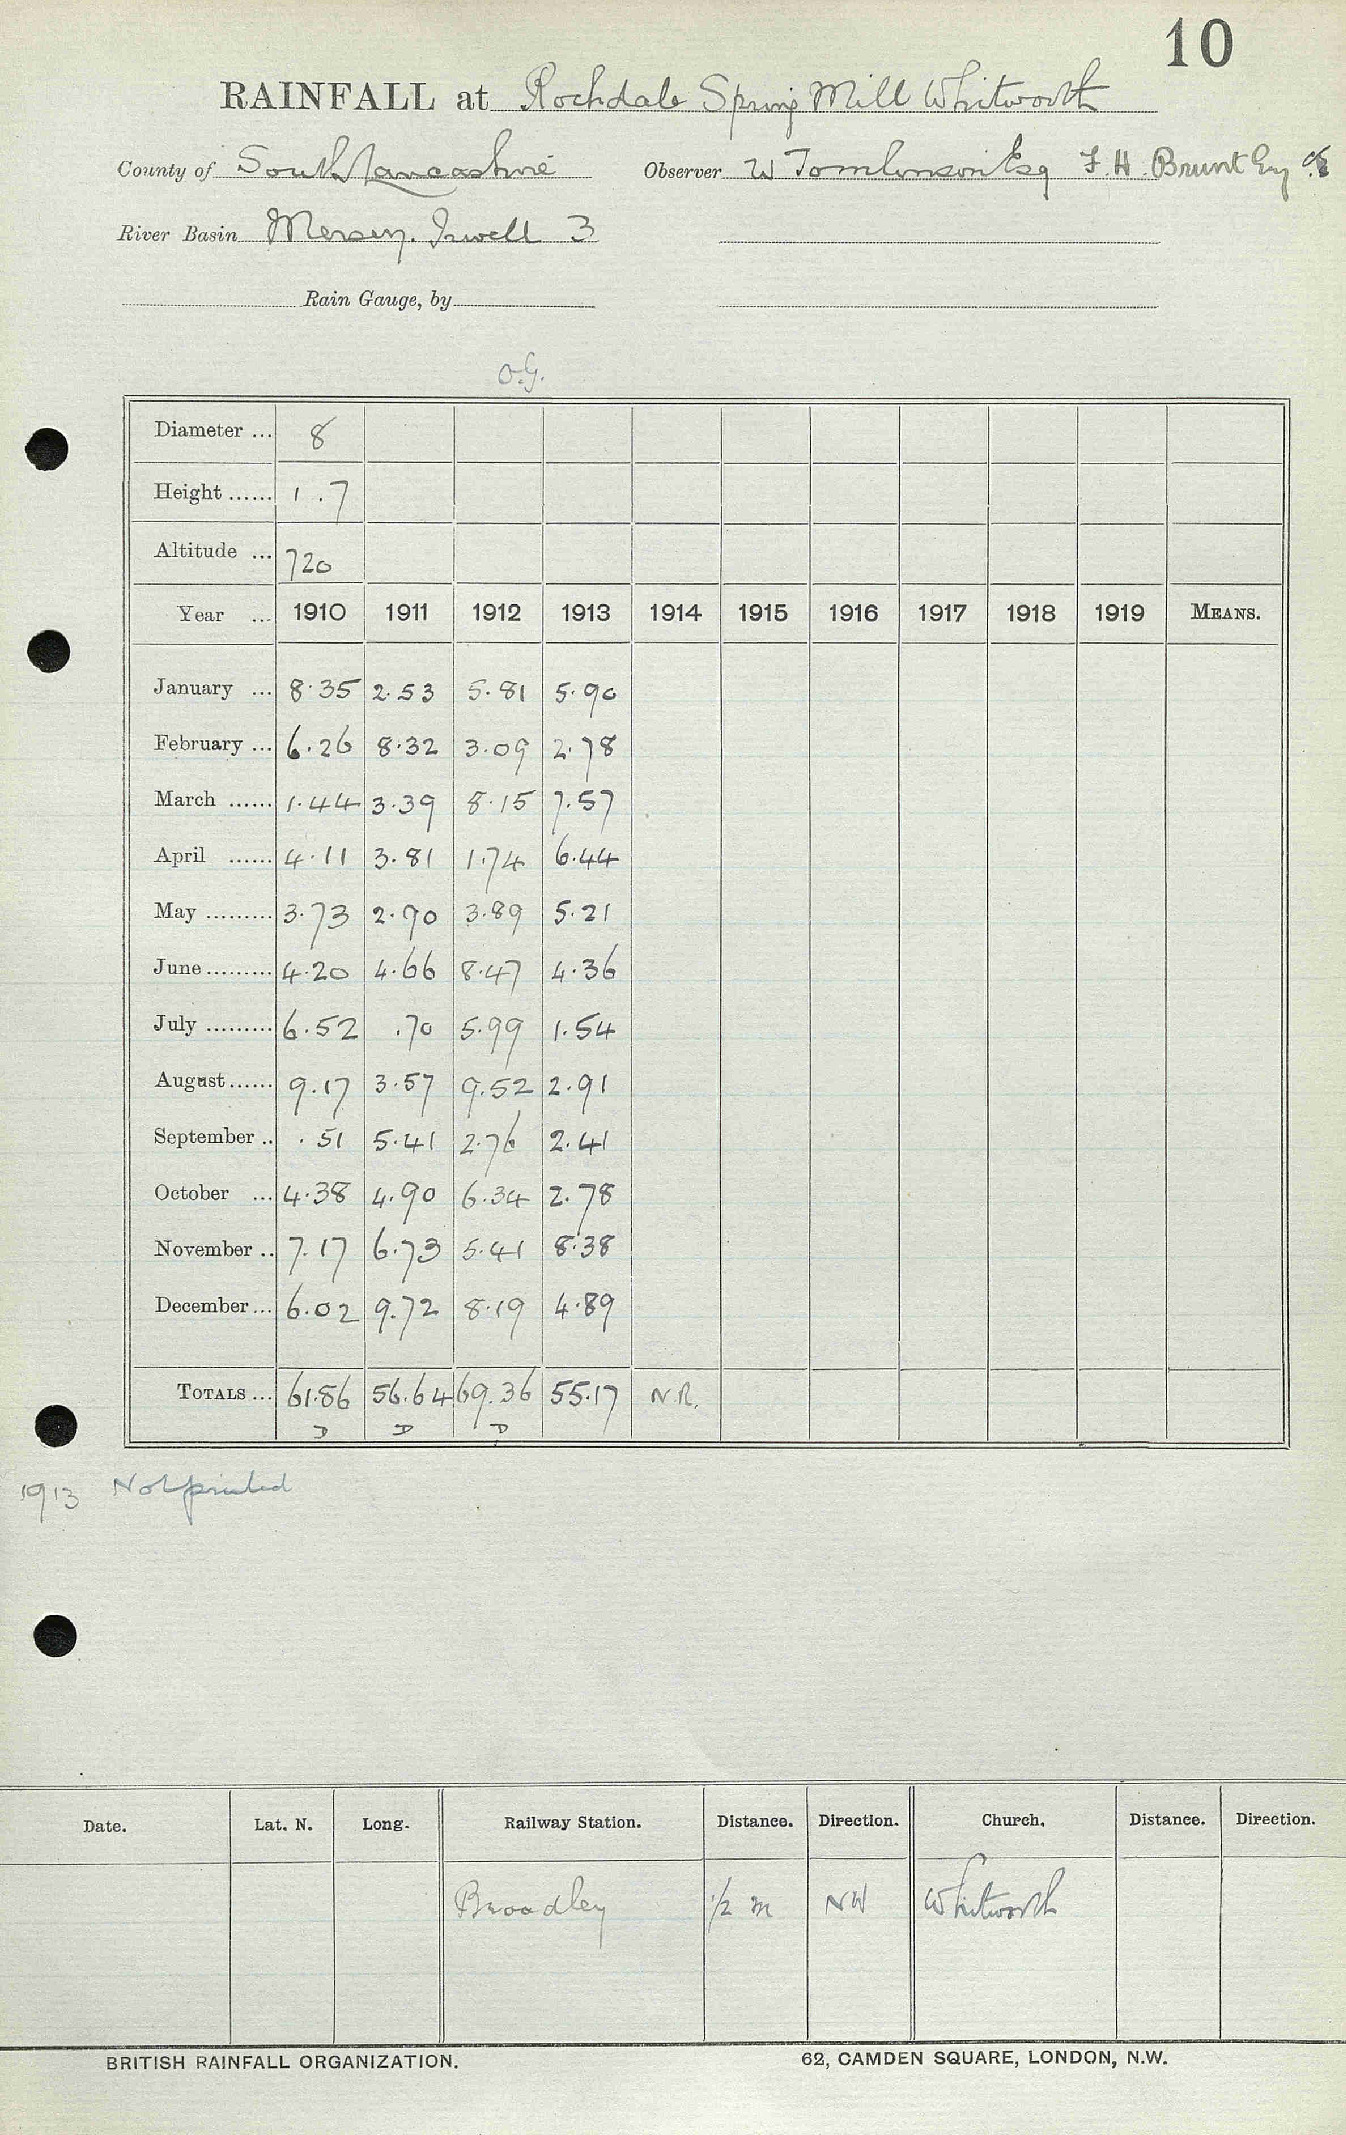 10
RAINFALL at Rochdale Spring Mill Whitworth
County of South Lancashire Observer W Tomlinson Esq F. H. Brunt Esq
River Basin Mersey. Irwell 3
Rain Gauge, by
O.G.
Diameter ... 8
Height ...... 1.7
Altitude ... 720
Year ... 1910 1911 1912 1913 1914 1915 1916 1917 1918 1919 MEANS.
January ... 8.35 2.53 5.81 5.90
February ... 6.26 8.32 3.09 2.78
March ...... 1.44 3.39 8.15 7.57
April ...... 4.11 3.81 1.74 6.44
May ......... 3.73 2.90 3.89 5.21
June ......... 4.20 4.66 8.47 4.36
July ......... 6.52 .70 5.99 1.54
August ...... 9.17 3.57 9.52 2.91
September .. .51 5.41 2.76 2.41
October ... 4.38 4.90 6.34 2.78
November .. 7.17 6.73 5.41 8.38
December ... 6.02 9.72 8.19 4.89
TOTALS ... 61.86 56.64 69.36 55.17 N.R.
D D D
1913 Not printed
Date. Lat. N. Long. Railway Station. Distance. Direction. Church. Distance. Direction.
Broadley 1/2 m NW Whitworth
BRITISH RAINFALL ORGANIZATION. 62, CAMDEN SQUARE, LONDON, N.W.